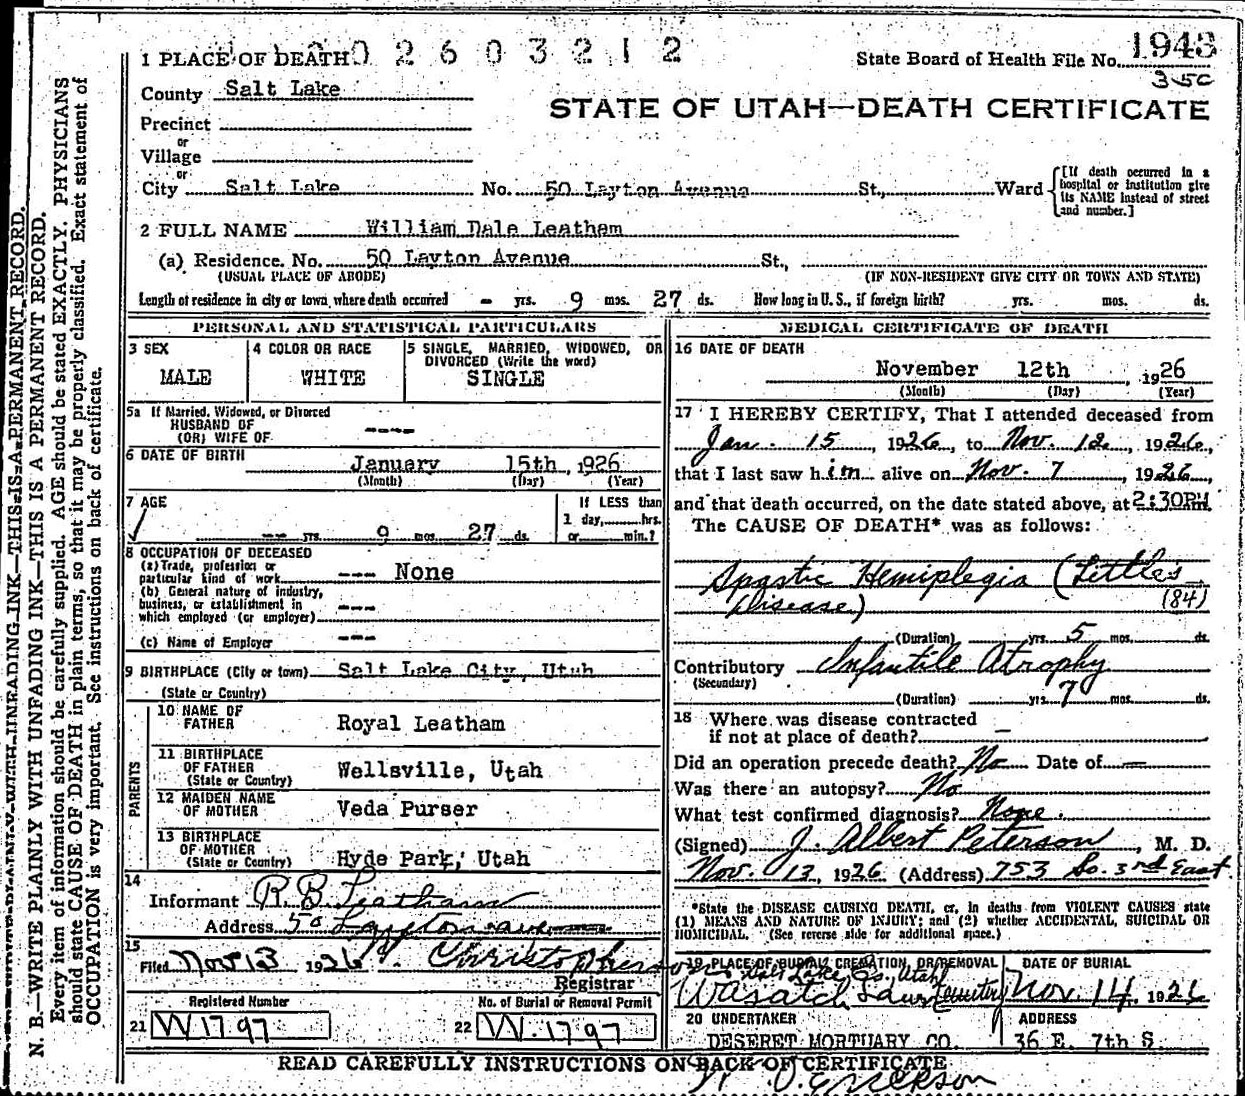 1 PLACE OF DEATH
02603212
State Board of Health File No. 1943
350
County Salt Lake
STATE OF UTAH—DEATH CERTIFICATE
Precinct
or
Village
or
City Salt Lake No. 50 Layton Avenue St., Ward
[If death occurred in a hospital or institution give its NAME instead of street and number.]
2 FULL NAME William Dale Leatham
(a) Residence. No. 50 Layton Avenue St.,
(USUAL PLACE OF ABODE) (IF NON-RESIDENT GIVE CITY OR TOWN AND STATE)
Length of residence in city or town where death occurred - yrs. 9 mos. 27 ds. How long in U. S., if foreign birth? yrs. mos. ds.
PERSONAL AND STATISTICAL PARTICULARS
3 SEX
MALE
4 COLOR OR RACE
WHITE
5 SINGLE, MARRIED, WIDOWED, OR
DIVORCED (Write the word)
SINGLE
5a If Married, Widowed, or Divorced
HUSBAND OF
(OR) WIFE OF ----
6 DATE OF BIRTH
January 15th, 1926
(Month) (Day) (Year)
7 AGE
-- yrs. 9 mos. 27 ds.
If LESS than
1 day, hrs.
or min.?
8 OCCUPATION OF DECEASED
(a) Trade, profession or
particular kind of work --- None
(b) General nature of industry,
business, or establishment in
which employed (or employer) ---
(c) Name of Employer ---
9 BIRTHPLACE (City or town) Salt Lake City, Utah
(State or Country)
PARENTS
10 NAME OF
FATHER Royal Leatham
11 BIRTHPLACE
OF FATHER
(State or Country) Wellsville, Utah
12 MAIDEN NAME
OF MOTHER Veda Purser
13 BIRTHPLACE
OF MOTHER
(State or Country) Hyde Park, Utah
14
Informant R. B. Leatham
Address 50 Layton ave
15
Filed Nov 13 1926 Christopherson
Registrar
Registered Number
21 W1797
No. of Burial or Removal Permit
22 W.1797
MEDICAL CERTIFICATE OF DEATH
16 DATE OF DEATH
November 12th, 1926
(Month) (Day) (Year)
17 I HEREBY CERTIFY, That I attended deceased from
Jan. 15, 1926, to Nov. 12, 1926,
that I last saw him alive on Nov. 7, 1926,
and that death occurred, on the date stated above, at 2:30PM m.
The CAUSE OF DEATH* was as follows:
Spastic Hemiplegia (Little's
Disease) (84)
(Duration) yrs. 5 mos. ds.
Contributory Infantile Atrophy
(Secondary)
(Duration) yrs. 7 mos. ds.
18 Where was disease contracted
if not at place of death? —
Did an operation precede death? No Date of —
Was there an autopsy? No
What test confirmed diagnosis? None.
(Signed) J. Albert Peterson, M. D.
Nov. 13, 1926 (Address) 753 So. 3rd East
*State the DISEASE CAUSING DEATH, or, in deaths from VIOLENT CAUSES state
(1) MEANS AND NATURE OF INJURY; and (2) whether ACCIDENTAL, SUICIDAL OR
HOMICIDAL. (See reverse side for additional space.)
19 PLACE OF BURIAL, CREMATION, OR REMOVAL
Salt Lake Co. Utah
Wasatch Lawn Cemetery
DATE OF BURIAL
Nov. 14, 1926
20 UNDERTAKER
DESERET MORTUARY CO.
ADDRESS
36 E. 7th S.
READ CAREFULLY INSTRUCTIONS ON BACK OF CERTIFICATE
N. B.—WRITE PLAINLY WITH UNFADING INK—THIS IS A PERMANENT RECORD.
Every item of information should be carefully supplied. AGE should be stated EXACTLY. PHYSICIANS
should state CAUSE OF DEATH in plain terms, so that it may be properly classified. Exact statement of
OCCUPATION is very important. See instructions on back of certificate.